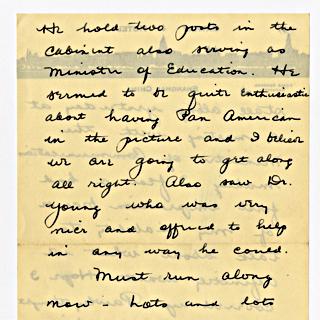 He hold two posts in the
Cabinent also serving as
Ministre of Education. He
seemed to be quite Enthusiastic
about having Pan American
in the picture and I believe
we are going to get along
all right. Also saw Dr.
Young who was very
nice and offered to help
in any way he could.
Must run along
now - Lots and lots